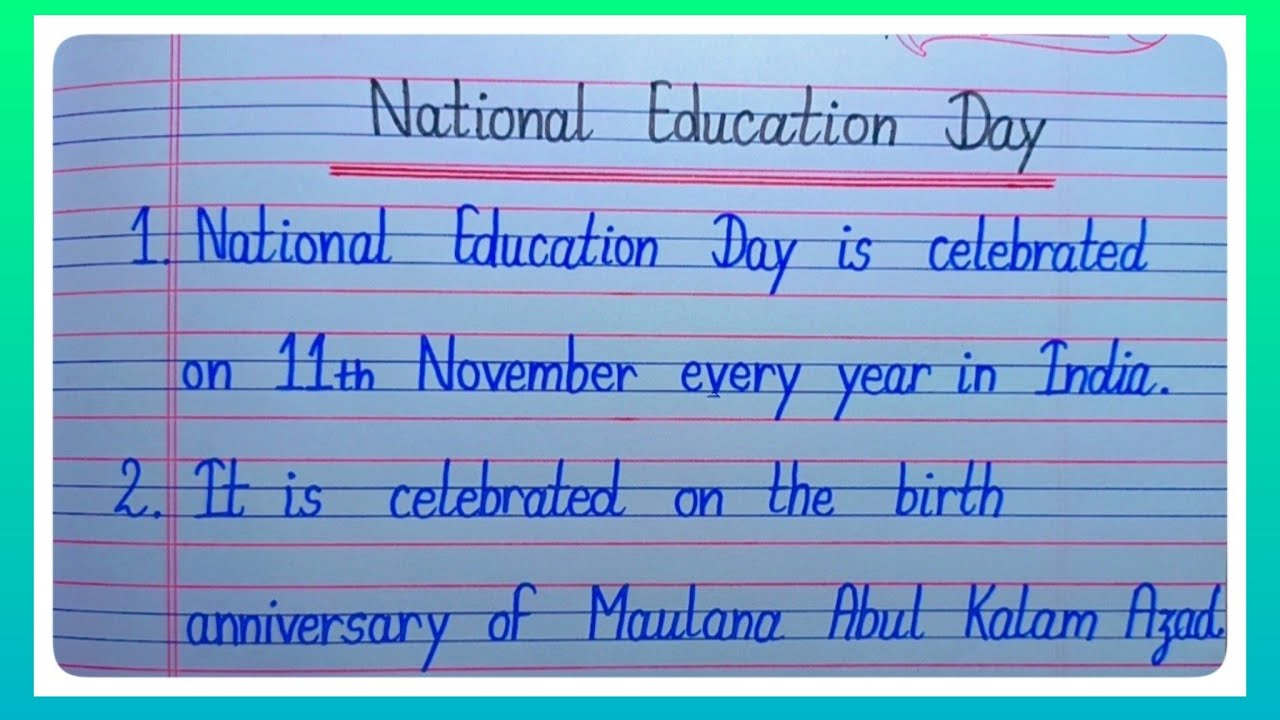 National Education Day
1. National Education Day is celebrated
on 11th November every year in India.
2. It is celebrated on the birth
anniversary of Maulana Abul Kalam Azad.